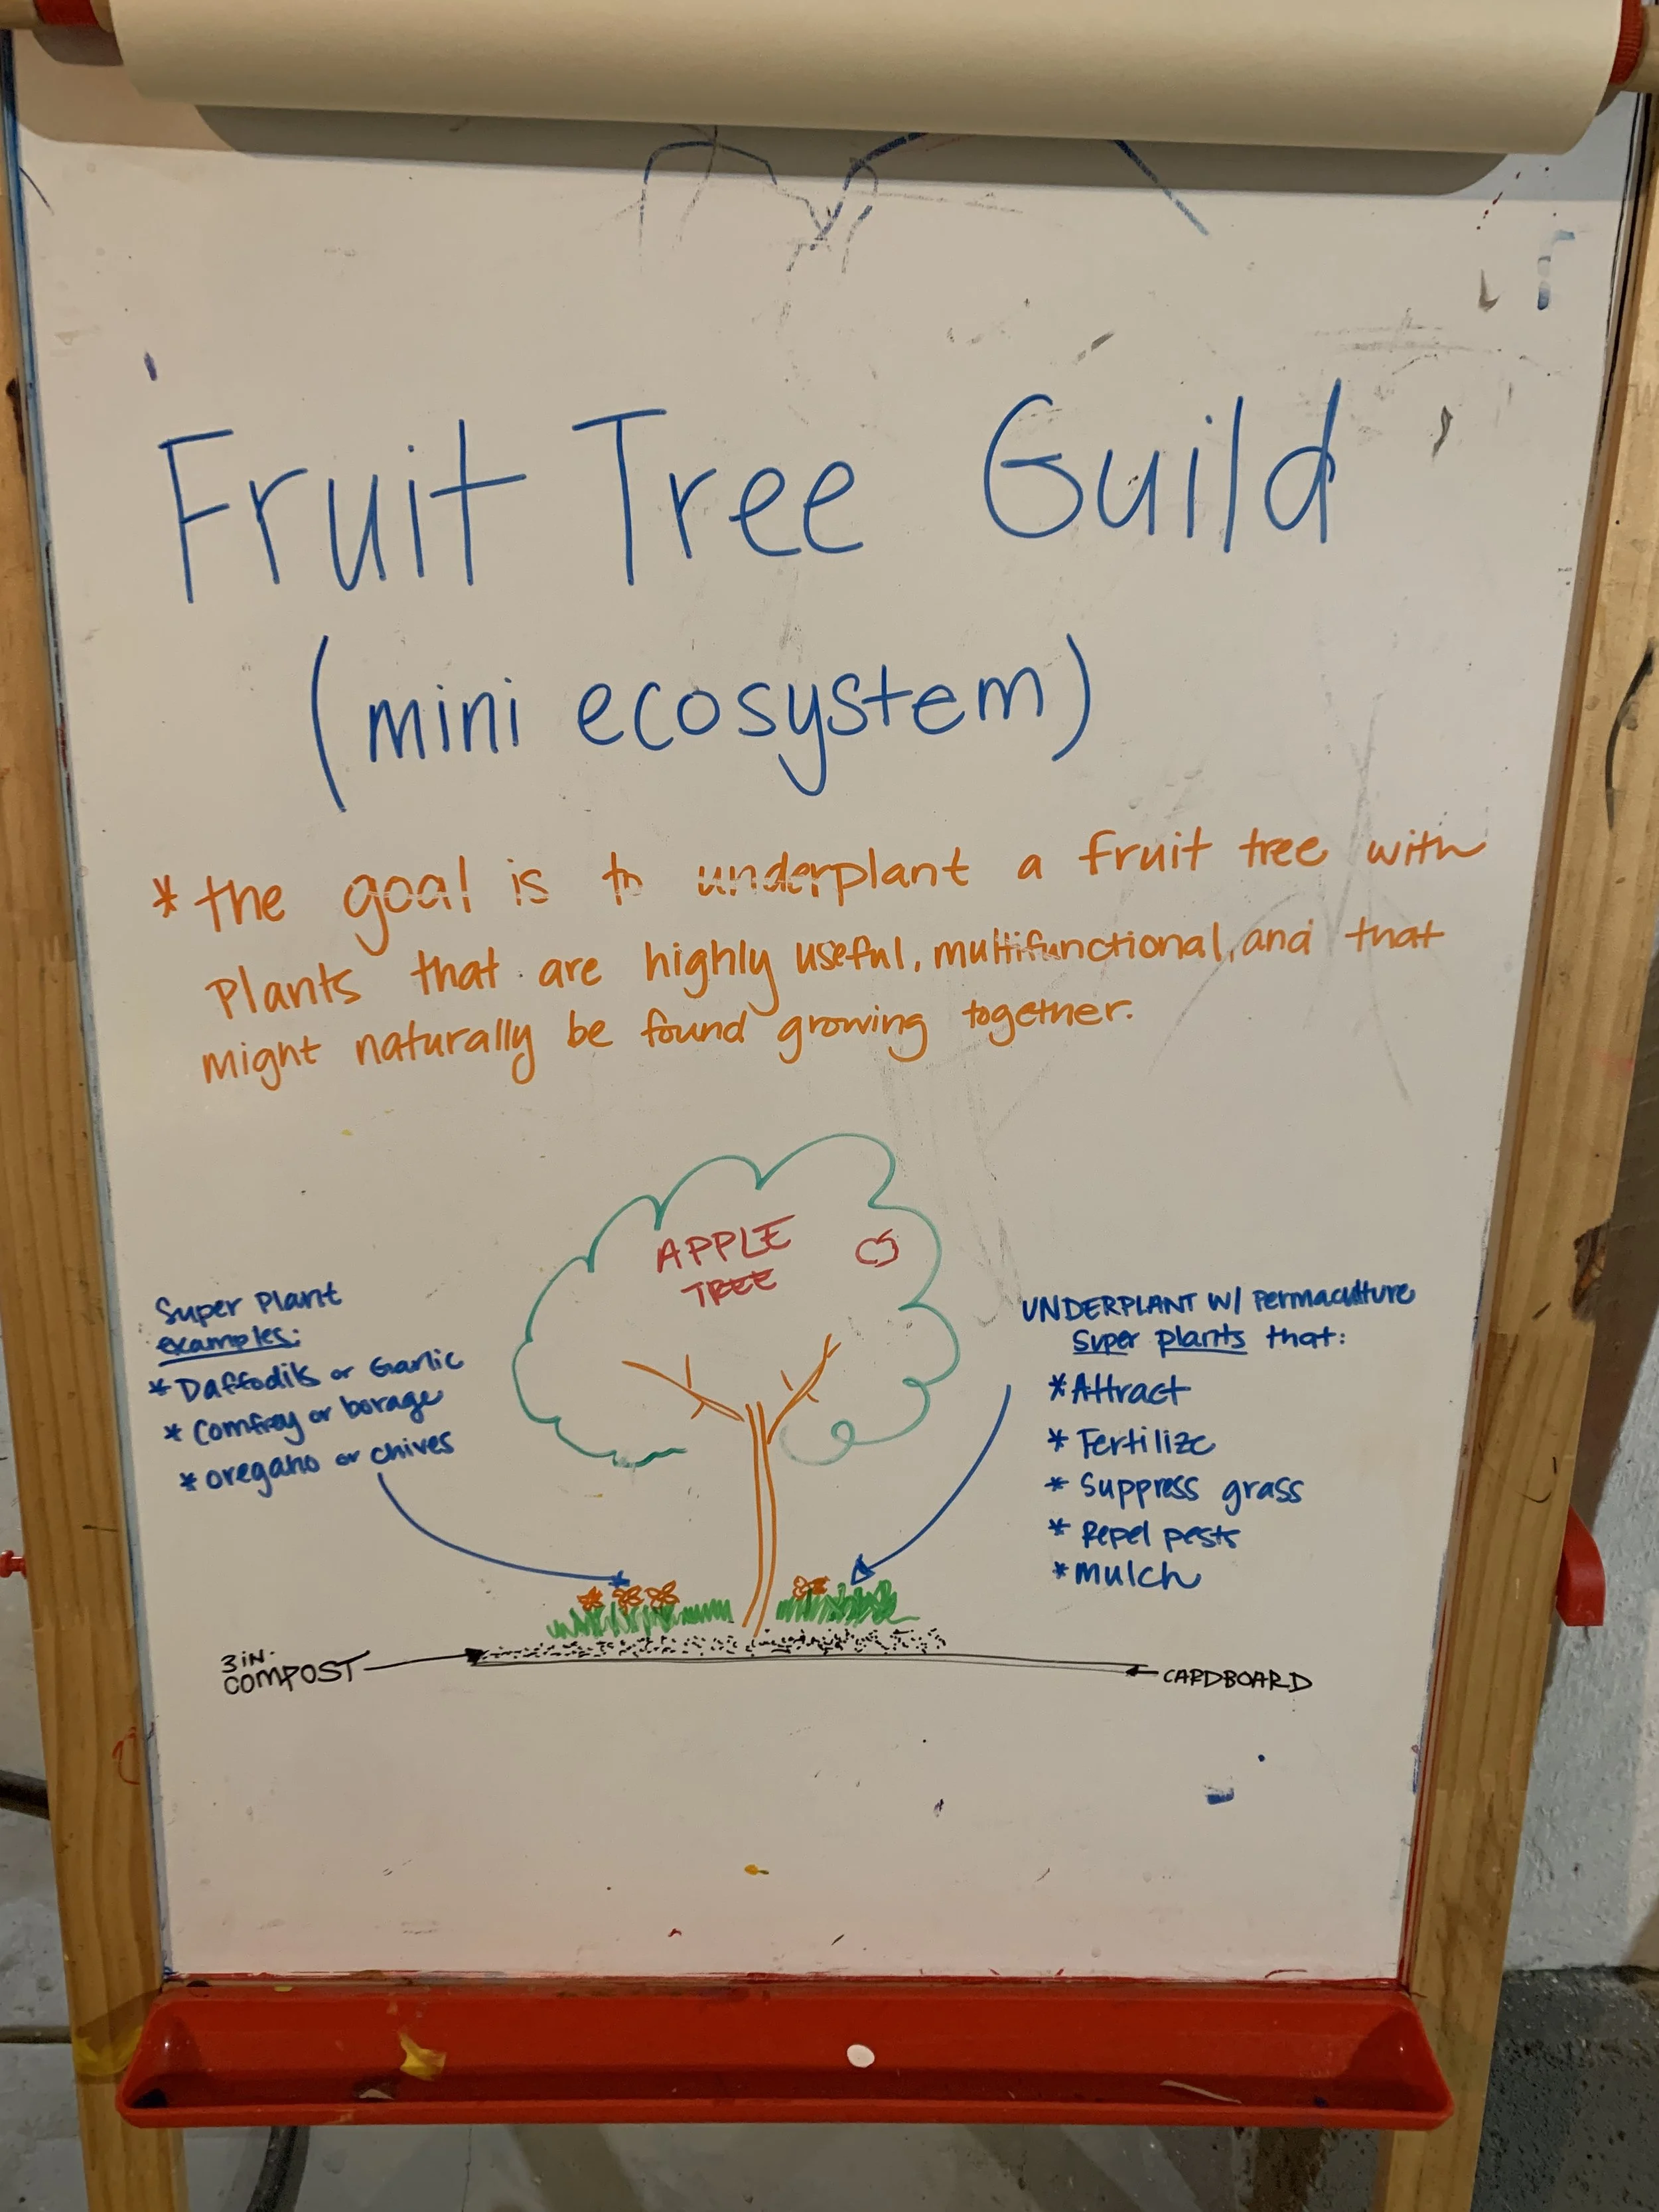 Fruit Tree Guild
(mini ecosystem)
* the goal is to underplant a fruit tree with
plants that are highly useful, multifunctional, and that
might naturally be found growing together.
APPLE
TREE
Super Plant
examples:
* Daffodils or Garlic
* Comfrey or borage
* oregano or chives
UNDERPLANT W/ Permaculture
Super plants that:
* Attract
* Fertilize
* Suppress grass
* Repel pests
* mulch
3 IN.
COMPOST
CARDBOARD